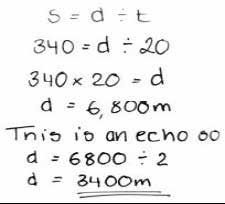 s = d ÷ t
340 = d ÷ 20
340 x 20 = d
d = 6,800m
This is an echo so
d = 6800 ÷ 2
d = 3400m